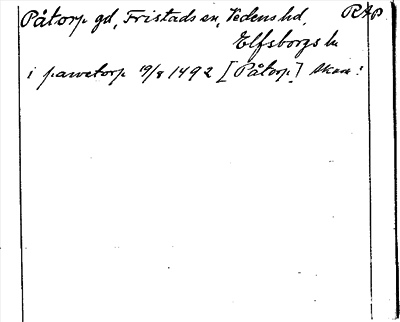 Påtorp gd, Fristads sn, Vedens hd, RAp
Elfsborgs ln
i pawetorp 19/8 1492 [Påtorp] Skara!